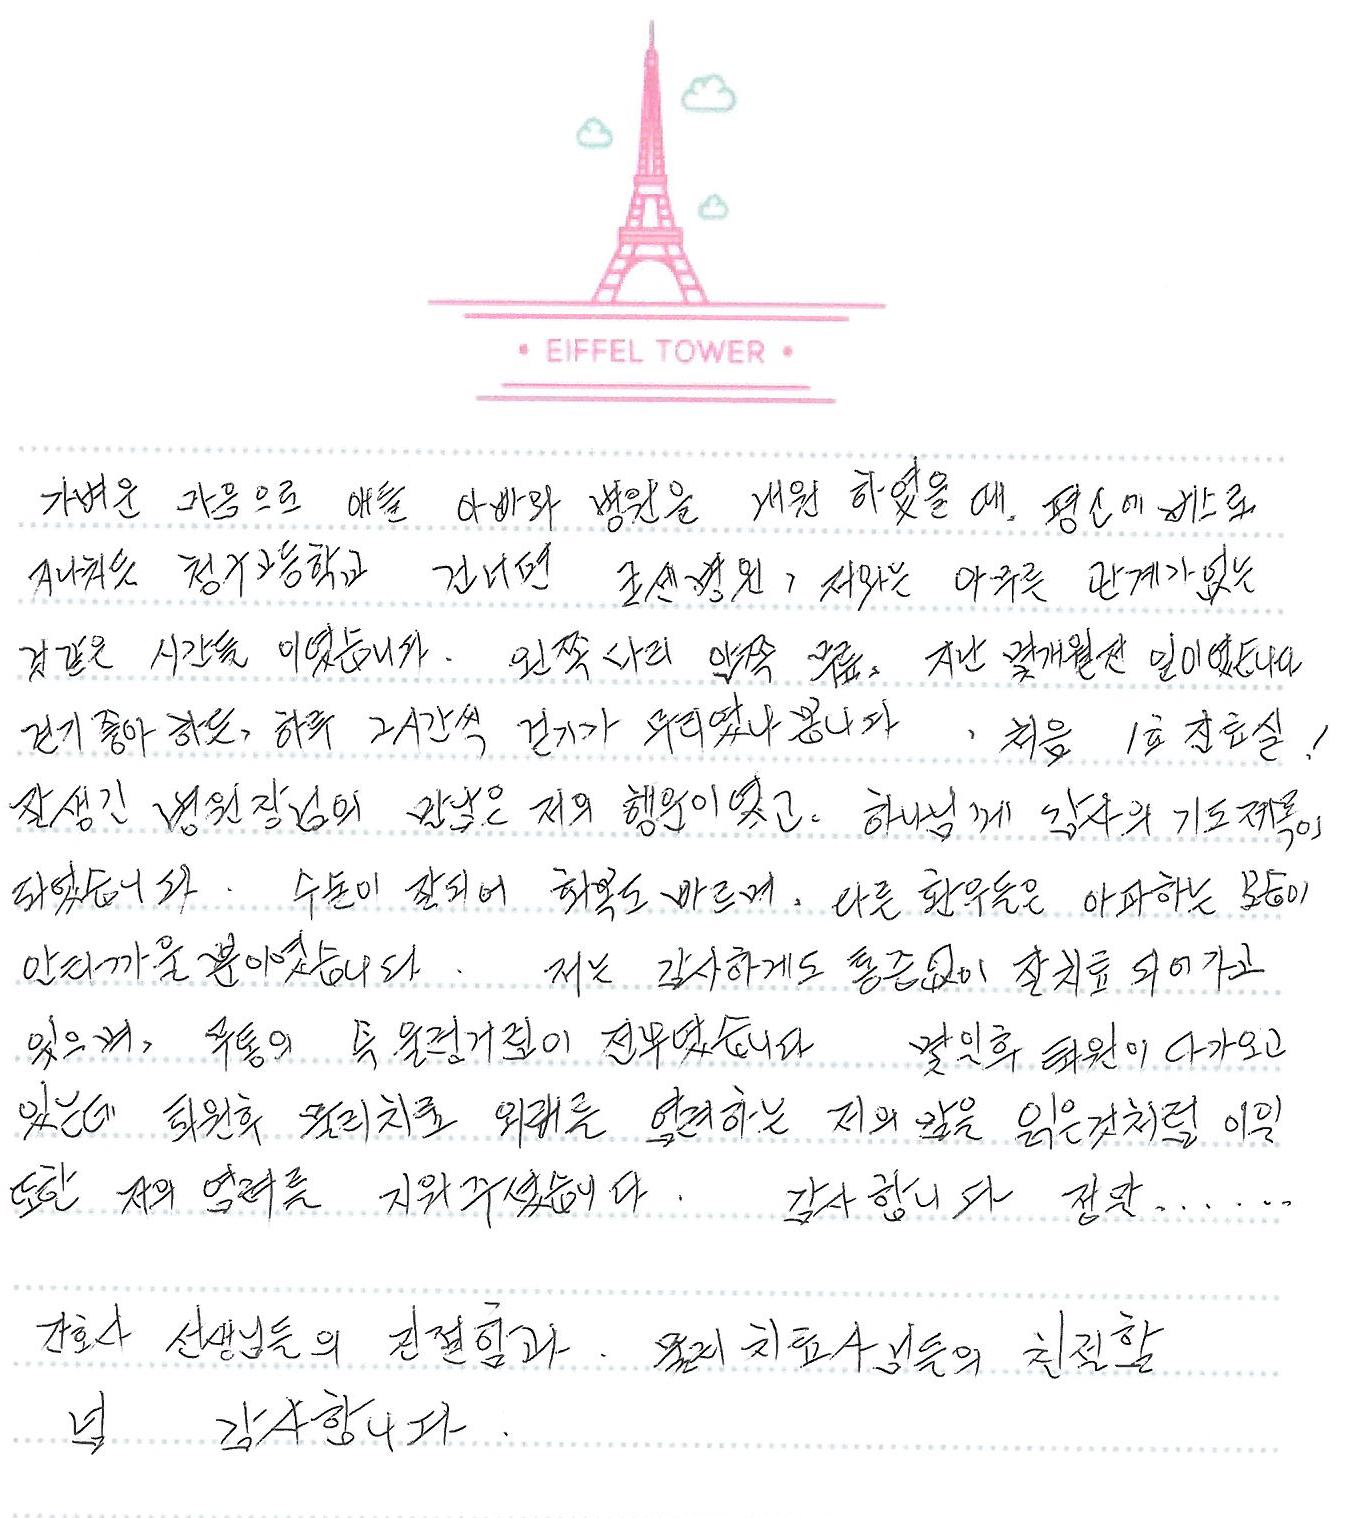 EIFFEL TOWER
가벼운 마음으로 애들 아빠와 병원을 내원 하였을 때, 평소에 버스로
지나치듯 청주고등학교 건너편 조은병원, 저와는 아무른 관계가없는
것같은 시간들 이였습니다. 왼쪽다리 안쪽 무릎, 지난 몇개월전 일이였습니다
걷기좋아 하듯, 하루 2시간씩 걷기가 무리였나 봅니다. 처음 1호 진료실!
잘생긴 병원장님의 만남은 저의 행운이였고. 하나님께 감사의 기도제목이
되었습니다. 수술이 잘되어 회복도 빠르며, 다른 환우들은 아파하는 모습이
안타까울 뿐이였습니다. 저는 감사하게도 통증없이 잘치료 되어가고
있으며, 무통의 특 울렁거림이 전무였습니다 몇일후 퇴원이 다가오고
있는데 퇴원후 물리치료 외래를 염려하는 저의 맘을 읽은것처럼 이일
또한 저의 염려를 지워주셨습니다. 감사합니다 정말......
간호사 선생님들의 친절함과. 물리치료사님들의 친절함
넘 감사합니다.